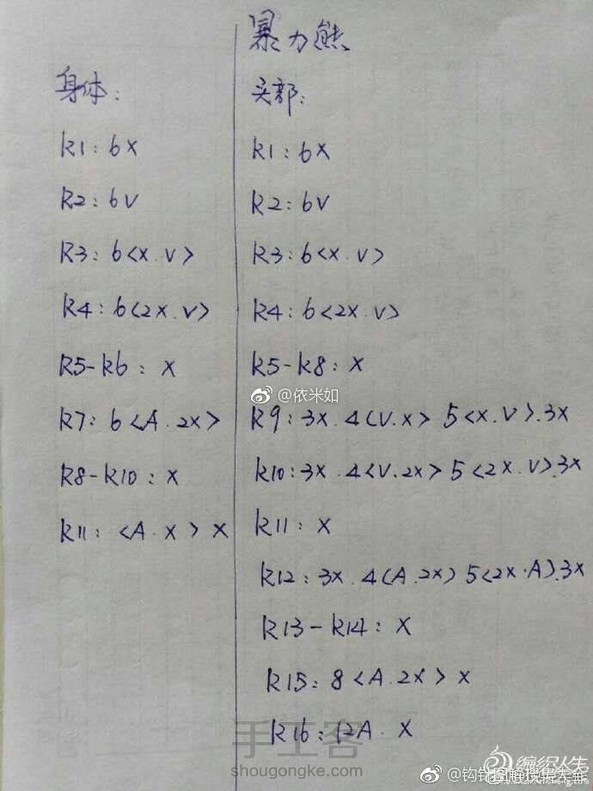 暴力熊
身体:
R1: 6X
R2: 6V
R3: 6<X.V>
R4: 6<2X.V>
R5-R6: X
R7: 6<A.2X>
R8-R10: X
R11: <A.X>X
头部:
R1: 6X
R2: 6V
R3: 6<X.V>
R4: 6<2X.V>
R5-R8: X
R9: 3X.4(V.X> 5<X.V>.3X
R10: 3X.4<V.2X> 5<2X.V>.3X
R11: X
R12: 3X.4(A.2X) 5<2X.A>.3X
R13-R14: X
R15: 8<A.2X>X
R16: 12A.X
@依米如
手工客
shougongke.com
编织人生